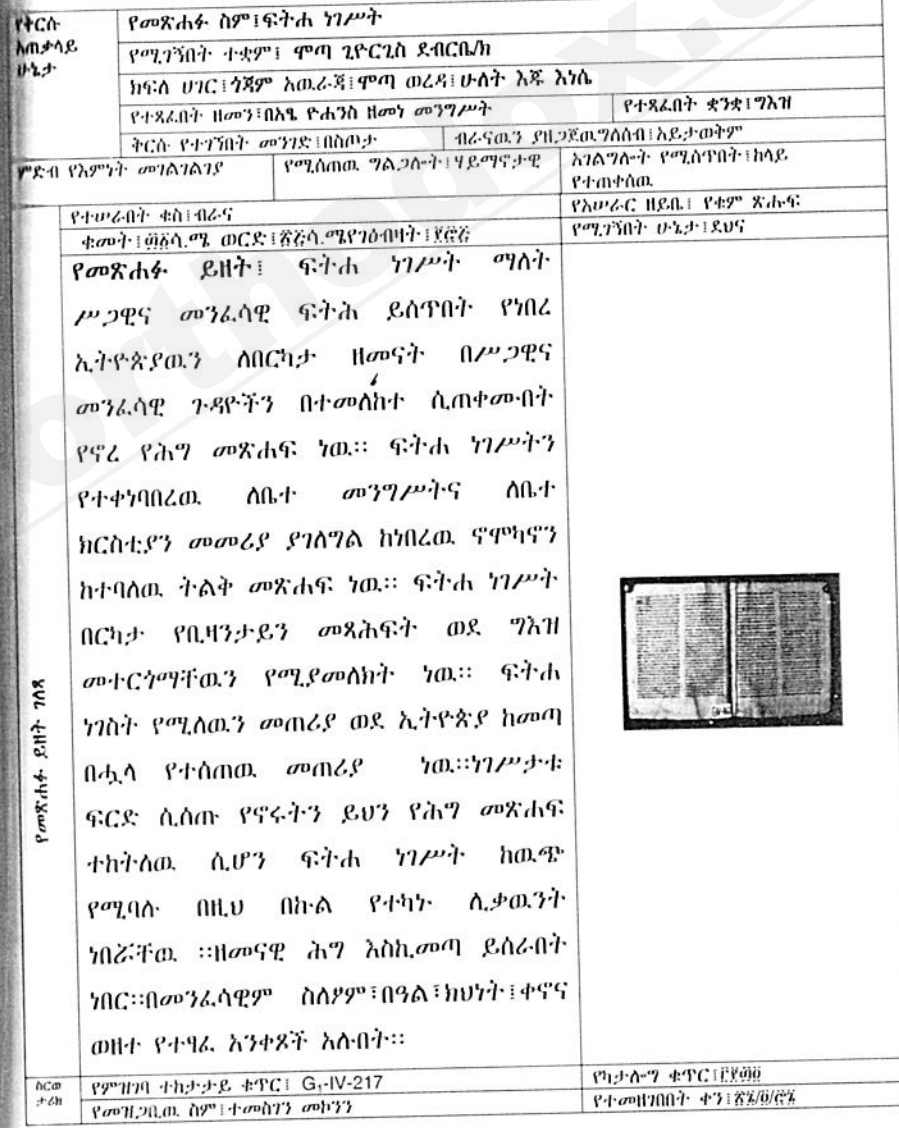 የቅርሱ
አጠቃላይ
ሁኔታ
የመጽሐፉ ስም፤ፍትሐ ነገሥት
የሚገኝበት ተቋም፤ ሞጣ ጊዮርጊስ ደብርቤ/ክ
ክፍለ ሀገር፤ጎጃም አዉራጃ፤ሞጣ ወረዳ፤ሁለት እጁ እነሴ
የተጻፈበት ዘመን፤በአፄ ዮሐንስ ዘመነ መንግሥት
የተጻፈበት ቋንቋ፤ግእዝ
ቅርሱ የተገኘበት መንገድ፤በስጦታ
ብራናዉን ያዘጋጀዉግለሰብ፤አይታወቅም
ምድብ የእምነት መገልገልገያ
የሚሰጠዉ ግልጋሎት፤ሃይማኖታዊ
አገልግሎት የሚሰጥበት፤ከላይ
የተጠቀሰዉ
የተሠራበት ቁስ፤ብራና
የአሠራር ዘይቤ፤ የቁም ጽሑፍ
የሚገኝበት ሁኔታ፤ደህና
የመጽሐፉ ይዘት ገለጻ
የመጽሐፉ ይዘት፤ ፍትሐ ነገሥት ማለት
ሥጋዊና መንፈሳዊ ፍትሕ ይሰጥበት የነበረ
ኢትዮጵያዉን ለበርካታ ዘመናት በሥጋዊና
መንፈሳዊ ጉዳዮችን በተመለከተ ሲጠቀሙበት
የኖረ የሕግ መጽሐፍ ነዉ። ፍትሐ ነገሥትን
የተቀነባበረዉ ለቤተ መንግሥትና ለቤተ
ክርስቲያን መመሪያ ያገለግል ከነበረዉ ኖሞካኖን
ከተባለዉ ትልቅ መጽሐፍ ነዉ። ፍትሐ ነገሥት
በርካታ የቢዛንታይን መጻሕፍት ወደ ግእዝ
መተርጎማቸዉን የሚያመለክት ነዉ። ፍትሐ
ነገስት የሚለዉን መጠሪያ ወደ ኢትዮጵያ ከመጣ
በሗላ የተሰጠዉ መጠሪያ ነዉ።ነገሥታቱ
ፍርድ ሲሰጡ የኖሩትን ይህን የሕግ መጽሐፍ
ተከትለዉ ሲሆን ፍትሐ ነገሥት ከዉጭ
የሚባሉ በዚህ በኩል የተካኑ ሊቃዉንት
ነበሯቸዉ ።ዘመናዊ ሕግ እስኪመጣ ይሰራበት
ነበር።በመንፈሳዊም ስለፆም፤በዓል፤ክህነት፤ቀኖና
ወዘተ የተፃፈ አንቀጾች አሉበት።
ስርወ
ታሪክ
የምዝገባ ተከታታይ ቁጥር፤ G₁-IV-217
የመዝጋቢዉ ስም፤ተመስገን መኮንን